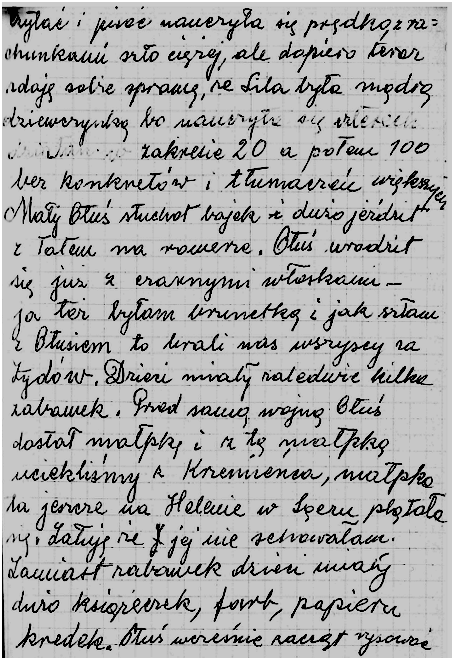 czytać i pisać nauczyła się prędko, z ra=
chunkami szło ciężej, ale dopiero teraz
zdaję sobie sprawę, że Lila była mądrą
dziewczynką bo nauczyła się czterech
działań w zakresie 20 a potem 100
bez konkretów i tłumaczeń większych
Mały Otuś słuchał bajek i dużo jeździł
z Tatem na rowerze. Otuś urodził
się już z czarnymi włoskami –
ja też byłam brunetką i jak szłam
z Otusiem to brali nas wszyscy za
Żydów. Dzieci miały zaledwie kilka
zabawek. Przed samą wojną Otuś
dostał małpkę i z tą małpką
uciekliśmy z Krzemieńca, małpka
ta jeszcze na Helenie w Sączu plątała
się. Żałuję że jej nie schowałam.
Zamiast zabawek dzieci miały
dużo książeczek, farb, papieru
kredek. Otuś wcześnie zaczął rysować